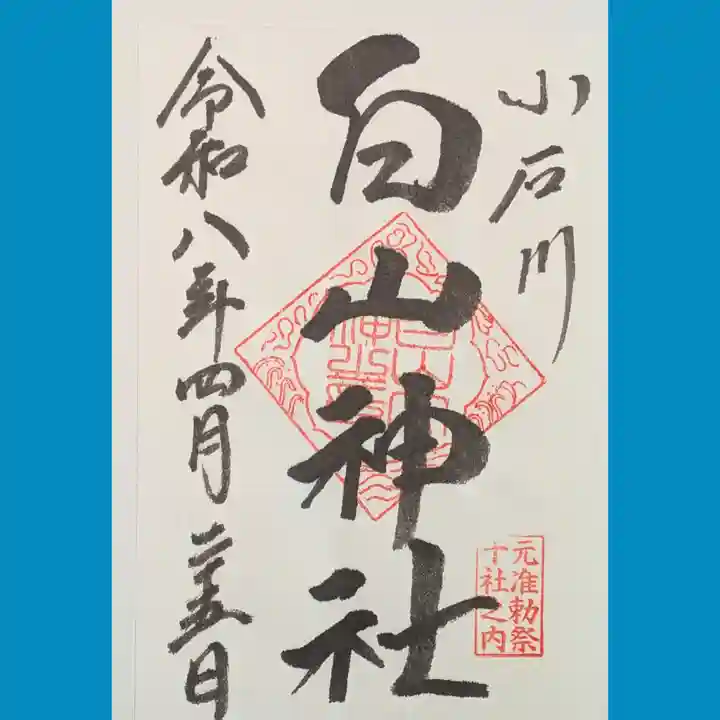 小石川
白山神社
令和八年四月二十五日
元准勅祭
十社之内